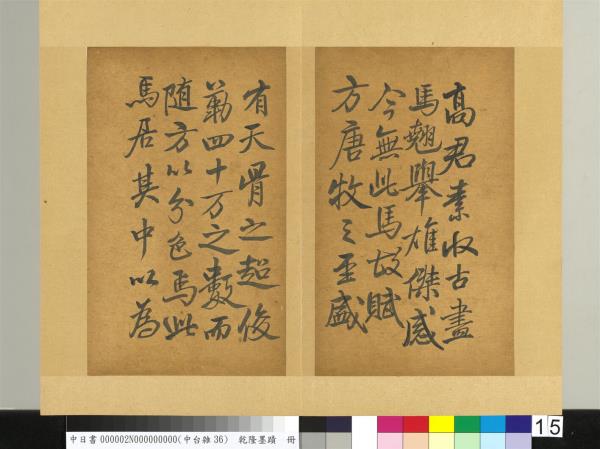 高君素收古畫
馬翹舉雄傑感
今無此馬故賦
方唐牧之至盛
有天骨之超俊
勒四十万之數而
随方以分色焉此
馬居其中以為
中日書000002N000000000(中台雜36) 乾隆墨蹟 冊
15